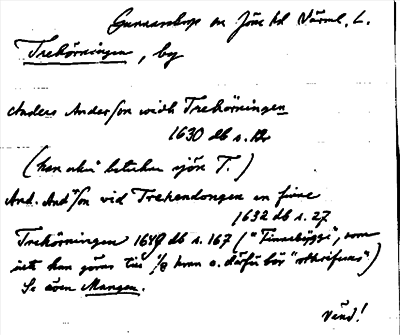 Gunnarskogs sn Jösse hd Värml. L.
Trekörningen, by
Anders Anderson widh Trekörningen
1630 db s.
(kan och betekna sjön T.)
And. And:son vid Trekendongen en finne
1632 db s. 27
Trekörningen 1649 db s. 167 ("Finnebÿggi", som
icke kan göras till 1/8 hman o. därför bör
Se även Mangen.
Vänd!